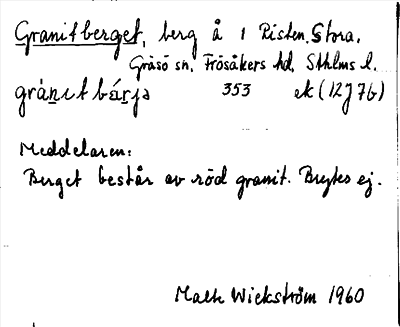 Granitberget, berg å 1 Risten, Stora,
Gräsö sn, Frösåkers hd, Sthlms l.
gránitbárjə 353 ek (12J 7b)
Meddelaren:
Berget består av röd granit. Brytes ej.
Wickström 1960